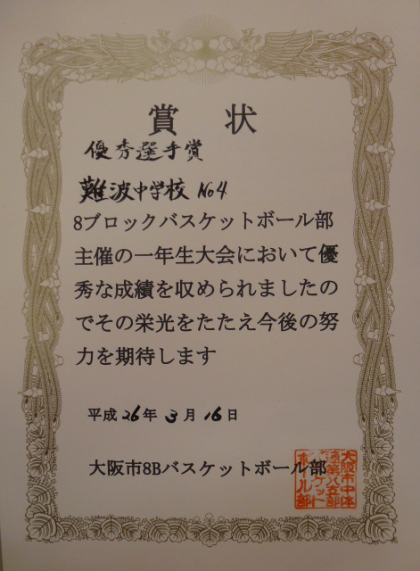 賞状
優秀選手賞
難波中学校 No4
8ブロックバスケットボール部
主催の一年生大会において優
秀な成績を収められましたの
でその栄光をたたえ今後の努
力を期待します
平成26年3月16日
大阪市8Bバスケットボール部